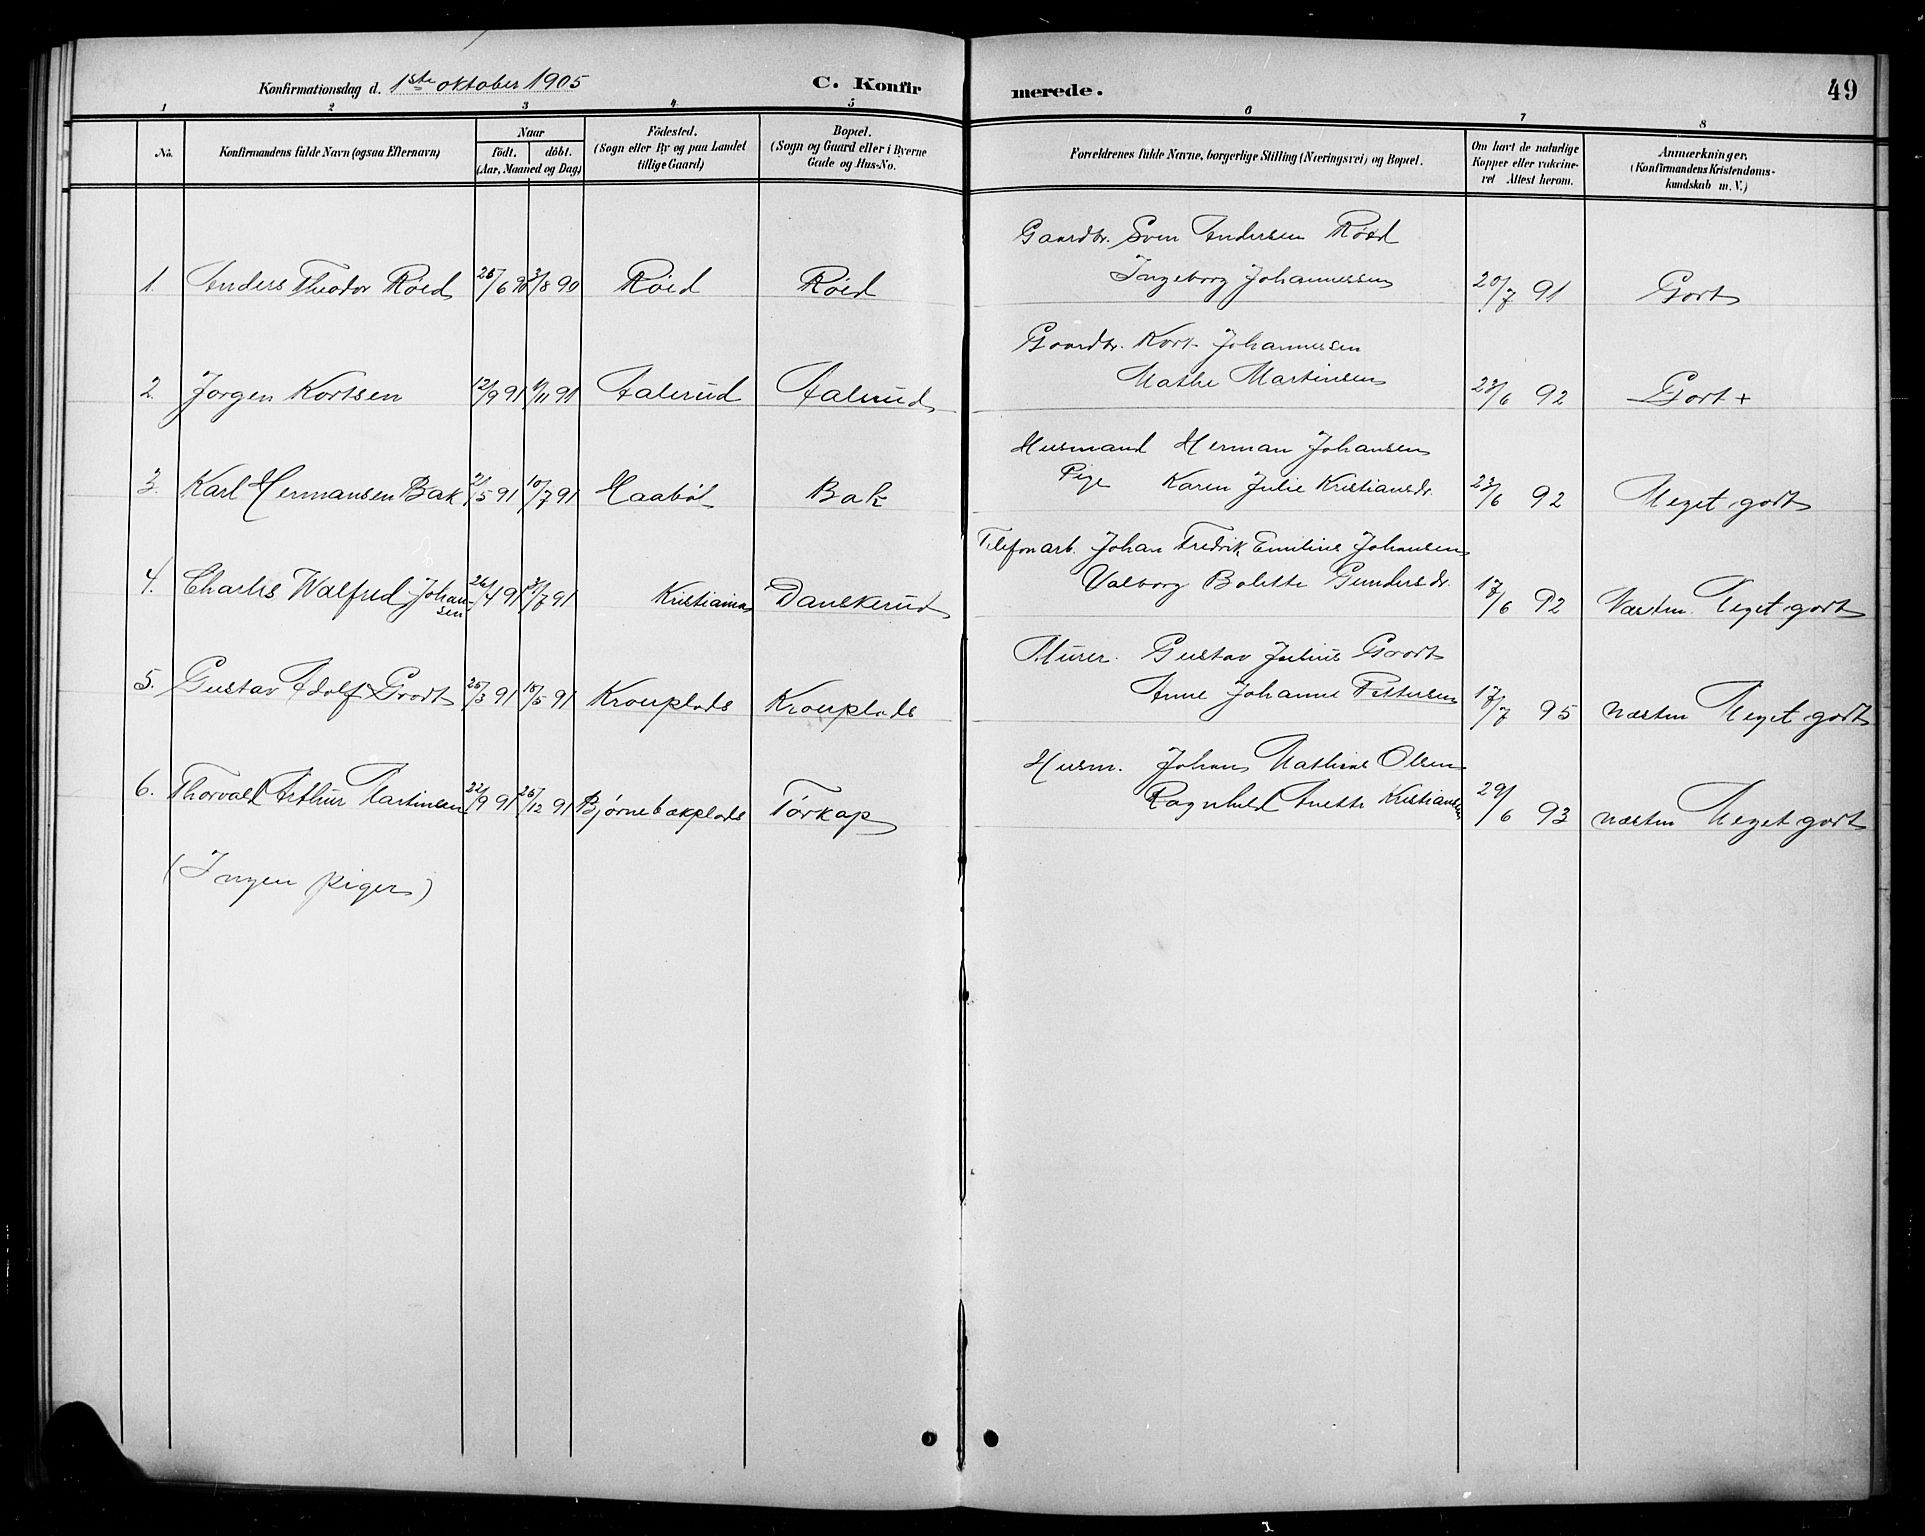 Konfirmationsdag d. 1ste oktober 1905
C. Konfirmerede.
49
1 2 3 4 5 6 7 8
No.
Konfirmandens fulde Navn (ogsaa Efternavn)
Naar
födt. döbt.
(Aar, Maaned og Dag)
Födested.
(Sogn eller By og paa Landet
tillige Gaard)
Bopæl.
(Sogn og Gaard eller i Byerne
Gade og Hus-No.
Forældrenes fulde Navne, borgerlige Stilling (Næringsvei) og Bopæl.
Om havt de naturlige
Kopper eller vakcine-
ret Attest herom.
Anmærkninger.
(Konfirmandens Kristendoms-
kundskab m. V.)
Gaardbr. Sven Andersen Röed
1. Anders Theodor Röed 26/6 90 3/8 90 Röed Röed Ingeborg Johannessen 20/7 91 Godt
Gaardbr. Kort Johannessen
2. Jørgen Kortsen 12/9 91 1/11 91 Aalerud Aalerud Mathe Martinsen 23/6 92 Godt +
Husmand Herman Johansen
3. Karl Hermansen Bak 21/5 91 10/7 91 Haabøl Bak Pige Karen Julie Kristiansdr. 23/6 92 Meget godt
Telefonarb. Johan Fredrik Emilius Johansen
4. Charles Walfred Johan-
sen 26/4 91 3/7 91 Kristiania Danskerud Valborg Bolette Gundersdr. 17/6 92 Næsten Meget godt
Murer. Gustav Julius Grodt
5. Gustav Adolf Grodt 25/3 91 18/5 91 Kroerplads Kroerplads Anne Johanne Pettersen 17/7 95 næsten Meget godt
Husm. Johan Mathias Olsen
6. Thorvald Arthur Martinsen 22/9 91 26/12 91 Bjørnebækplads Tørkop Ragnhild Anette Kristiansen 29/6 93 næsten Meget godt
(Ingen piger)